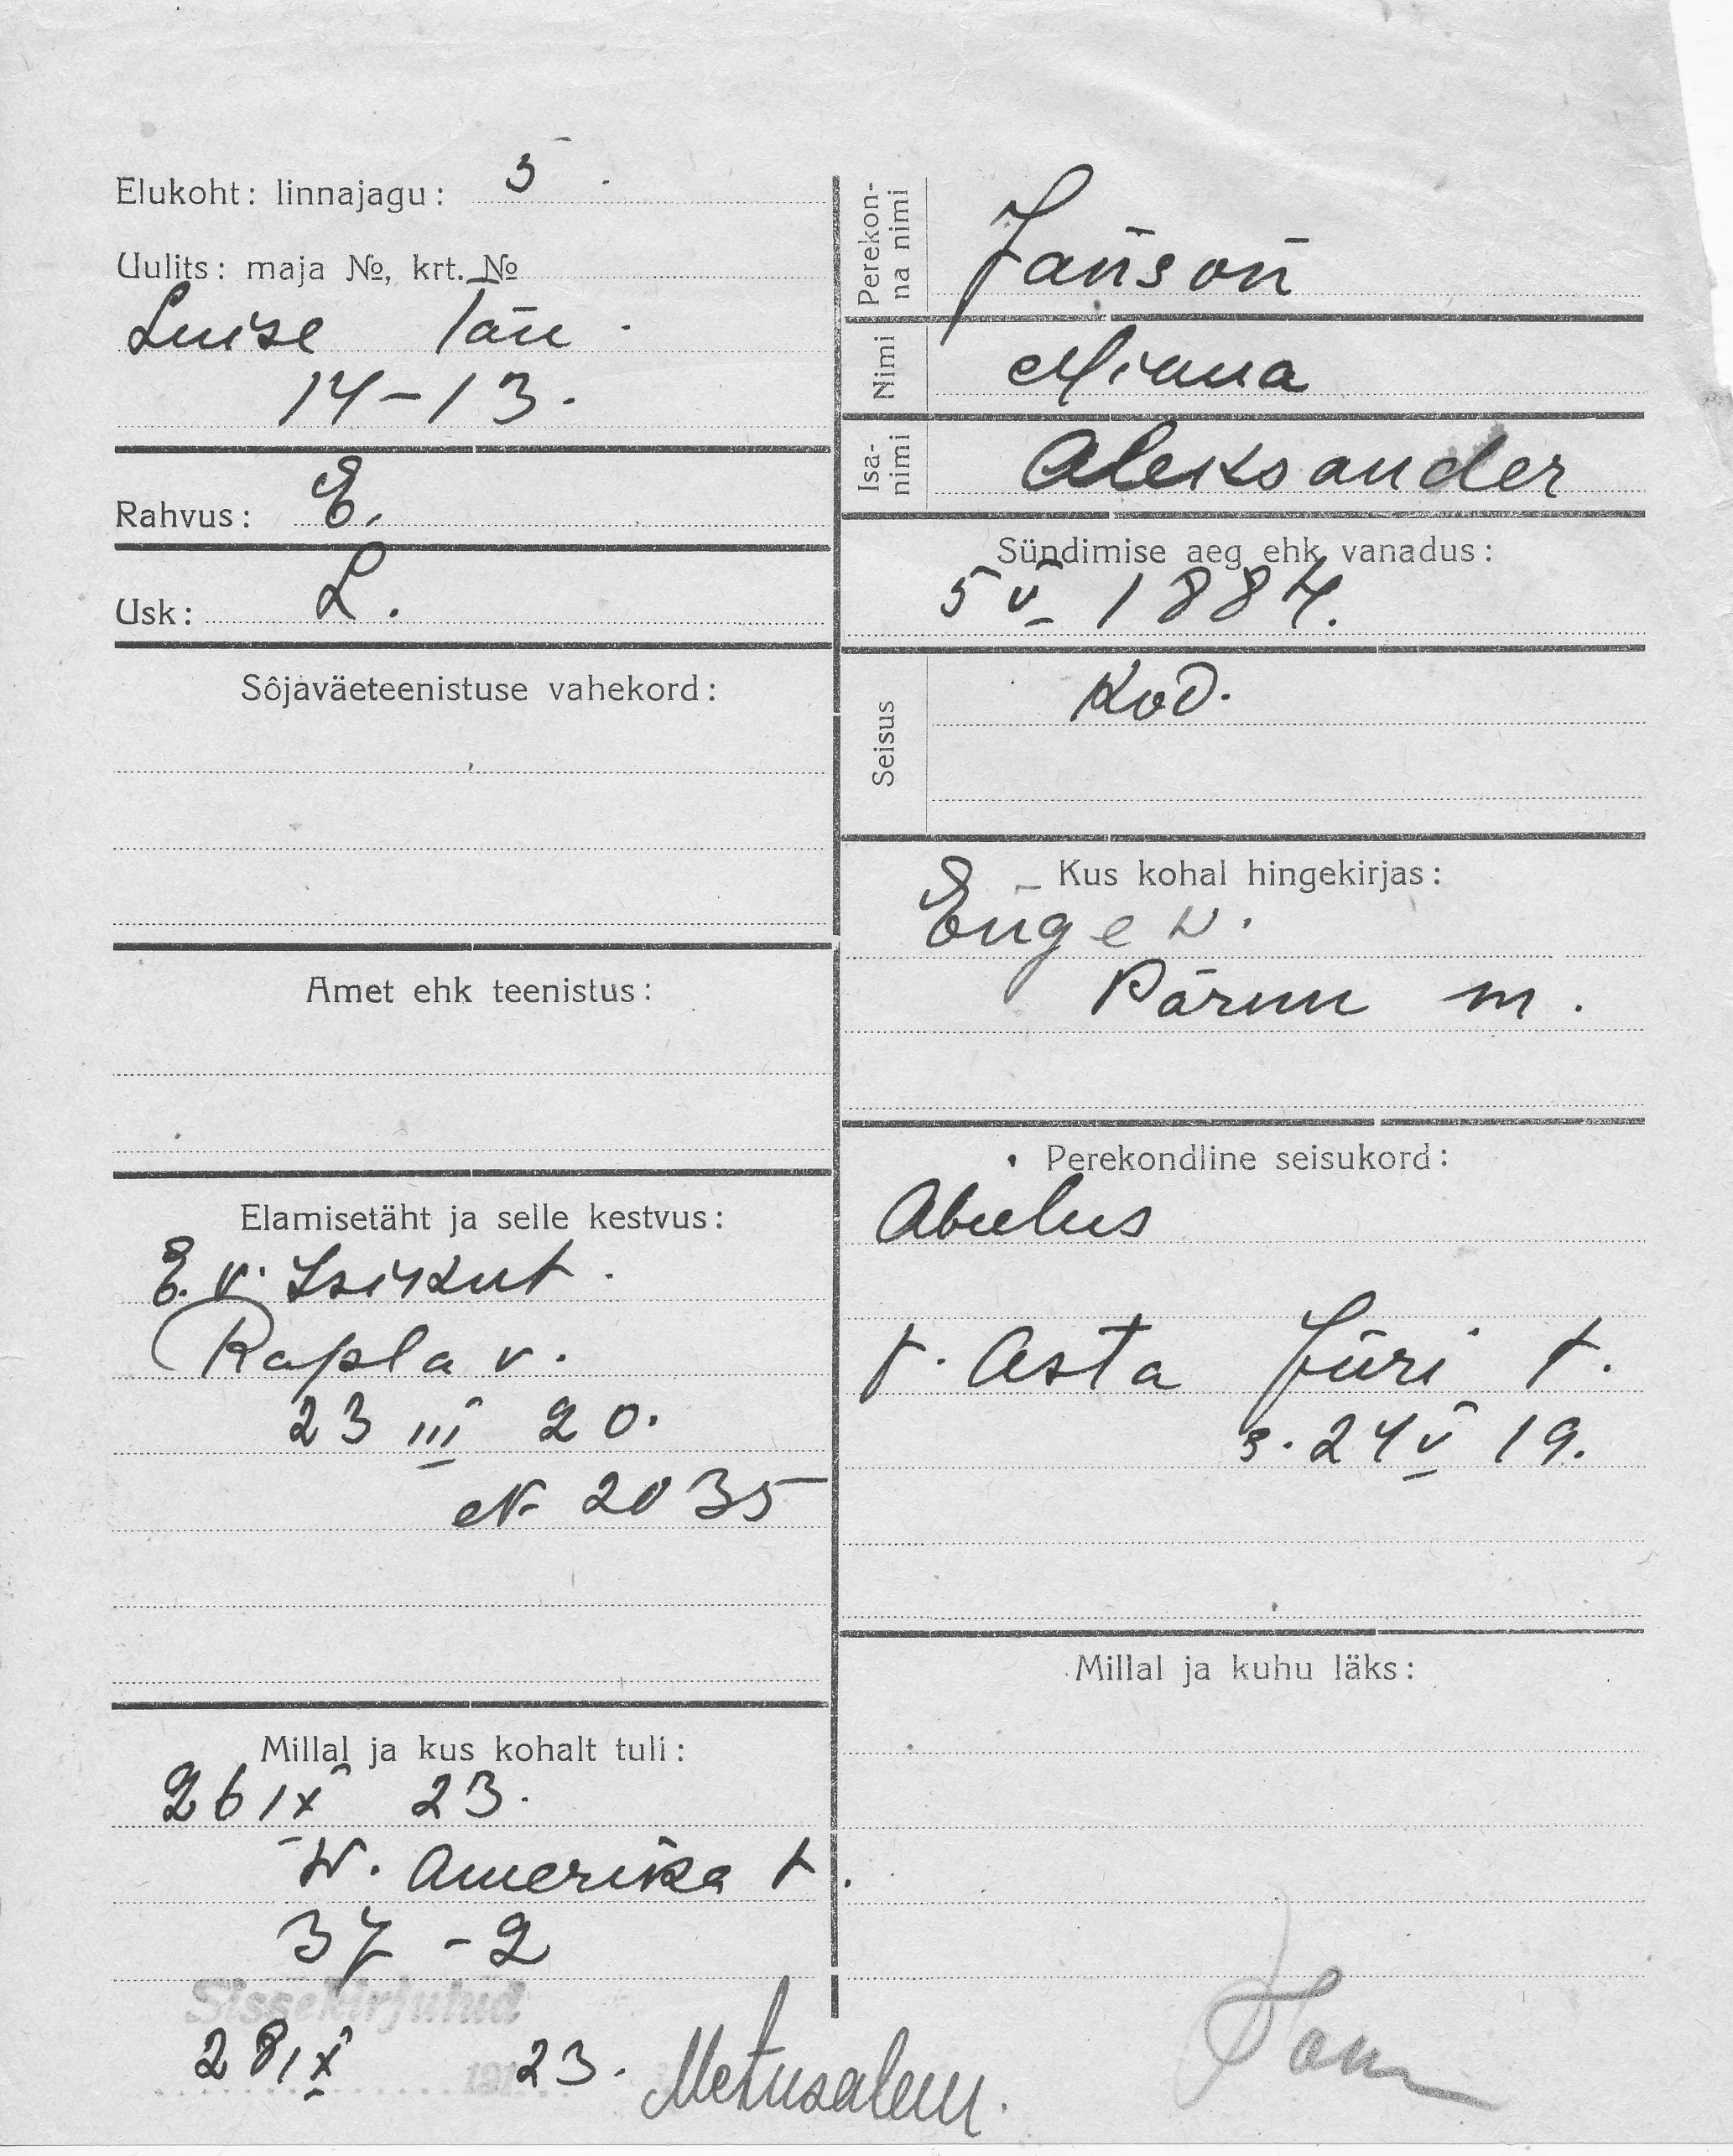 Elukoht: linnajagu: 5
Uulits: maja №, krt. №
Luise tän.
14-13.
Rahvus: E.
Usk: L.
Sõjaväeteenistuse vahekord:
Amet ehk teenistus:
Elamisetäht ja selle kestvus:
E. v. Isikut.
Rapla v.
23 III 20.
N 2035
Millal ja kus kohalt tuli:
26 IX 23.
W. Amerika t.
37 - 2
Sissekirjutud
28 IX 1923.
Metusalem.
Perekonna nimi
Janson
Nimi
Minna
Isanimi
Aleksander
Sündimise aeg ehk vanadus:
5 V 1884.
Seisus
Kod.
Kus kohal hingekirjas:
Enge w.
Pärnu m.
Perekondline seisukord:
Abielus
t. Asta Jüri t.
s. 24 V 19.
Millal ja kuhu läks: